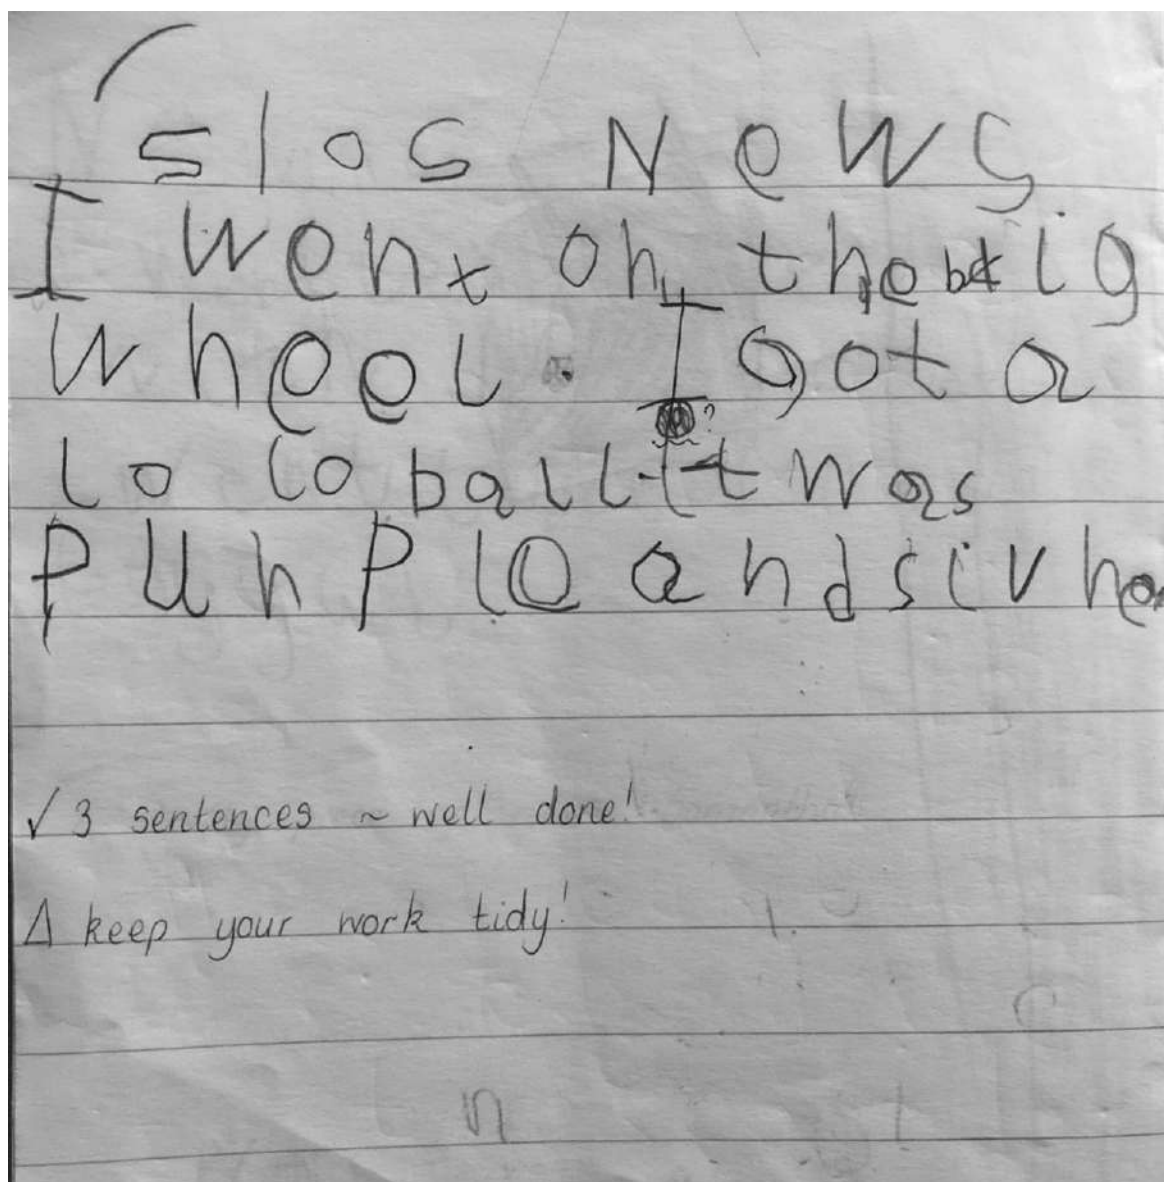 slos News
I went on the big
wheel. I got a
lo lo ball. It was
purple and sivhe
√ 3 sentences ~ well done!
Δ keep your work tidy!